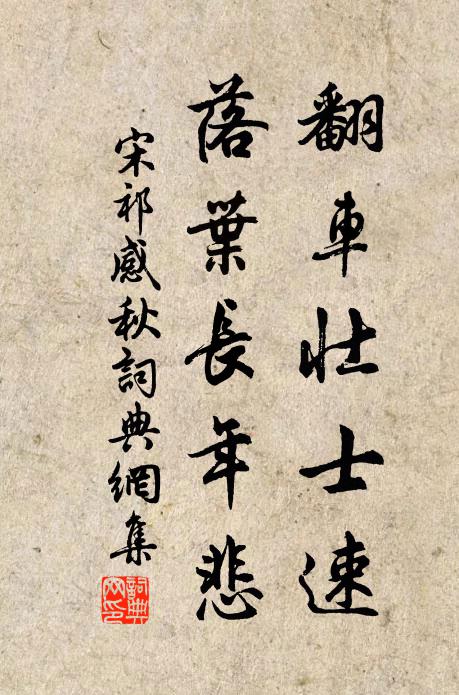 翻車壯士速
落葉長年悲
宋祁感秋詞典網集
詞典網印